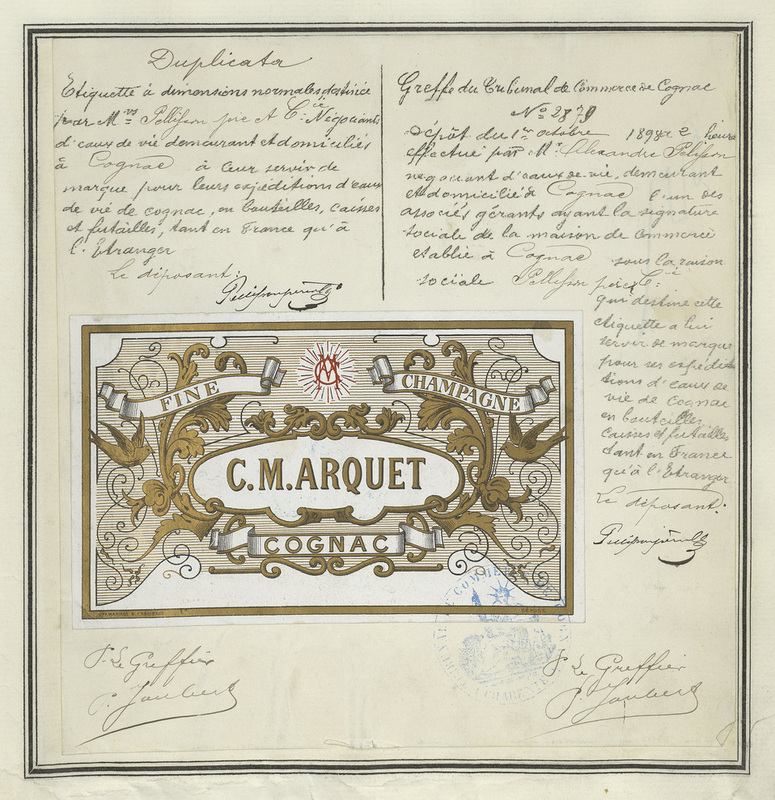 Duplicata
Etiquette à dimensions normales, destinée
par M.rs Pellisson père et C.ie Négociants
d'eaux de vie demeurant et domiciliés
à Cognac à leur servir de
marque pour leurs expéditions d'eaux
de vie de cognac, en bouteilles, caisses
et futailles, tant en France qu'à
l'Etranger
Le déposant:
Pellissonpère&Co
Greffe du Tribunal de Commerce de Cognac
No 2879
Dépôt du 1er octobre 189 2 heure
effectué par Mr. Alexandre Pellisson
negociant d'eaux de vie, demeurant
et domicilié à Cognac l'un des
associés gérants ayant la signature
sociale de la maison de commerce
établie à Cognac sous la raison
sociale Pellisson père & C.ie
qui destine cette
étiquette à lui
servir de marque
pour ses expédi-
tions d'eaux de
vie de cognac
en bouteilles,
caisses et futailles
tant en France
qu'à l'Etranger
Le déposant:
Pellissonpère&Co
FINE
CHAMPAGNE
C.M.ARQUET
COGNAC
DÉPOSÉ
P. Le Greffier
P. Joubert
P. Le Greffier
P. Joubert